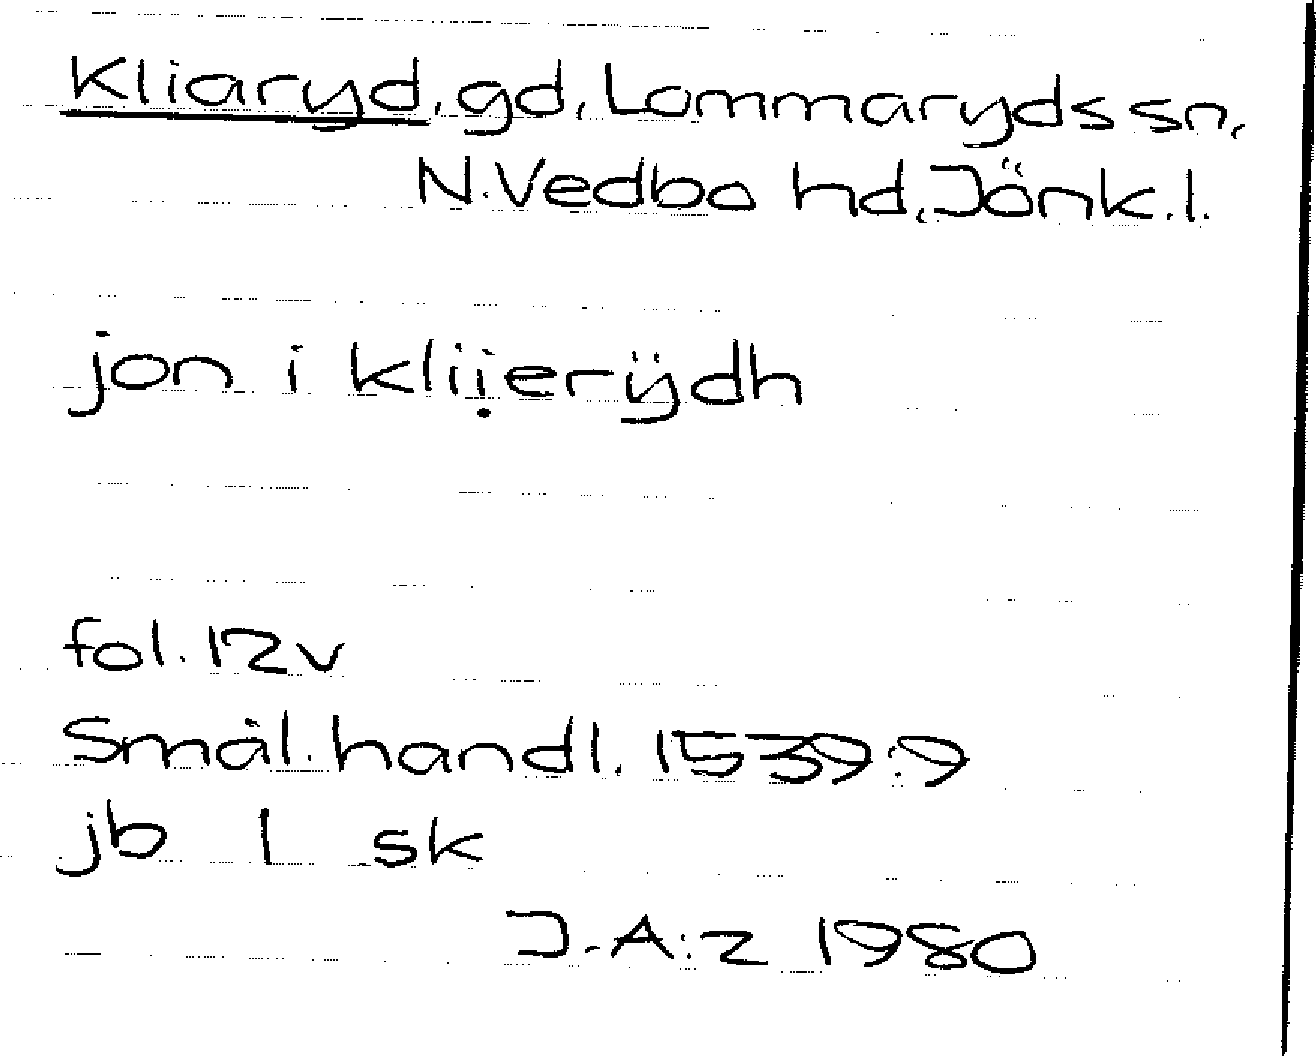 Kliaryd, gd, Lommaryds sn,
N. Vedbo hd, Jönk. l.
jon i kliịerÿdh
fol. 12v
Smål. handl. 1539:9
jb 1 sk
J.A:z 1980